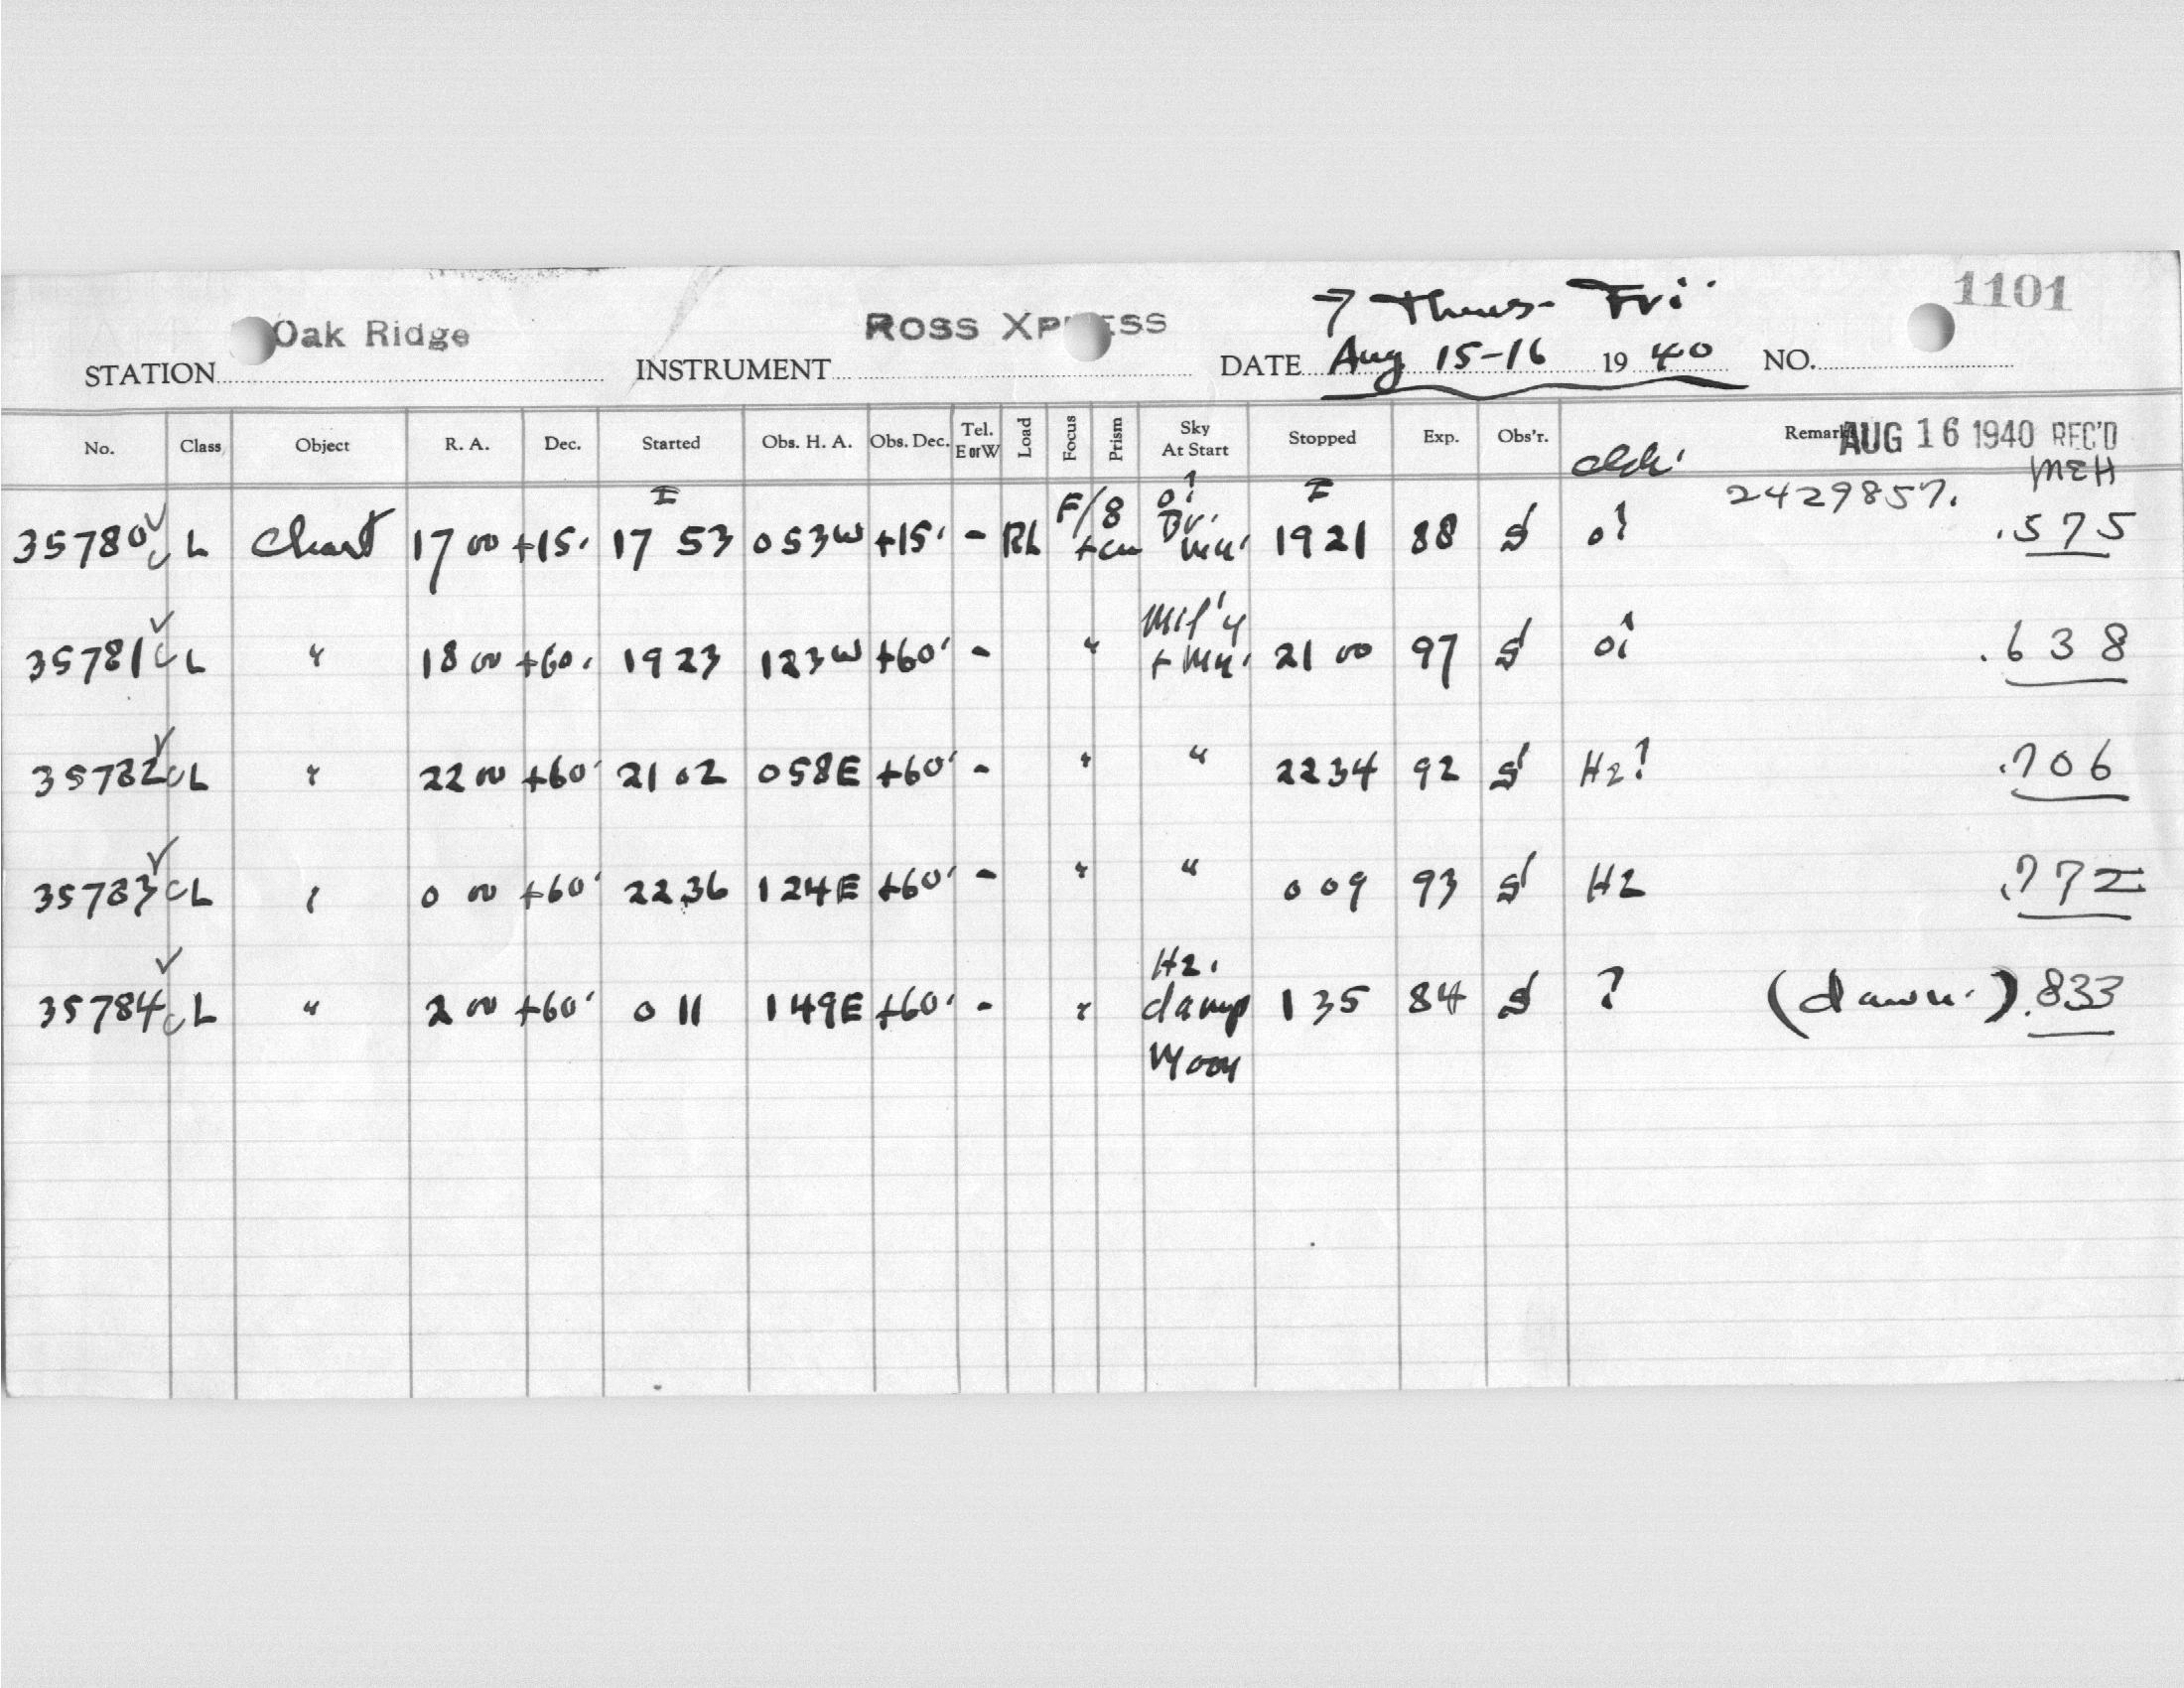 → Thurs- Fri. 1101
STATION Oak Ridge INSTRUMENT ROSS XPRESS DATE Aug 15-16 19 40 NO.
No. Class Object R. A. Dec. Started Obs. H. A. Obs. Dec. Tel. E or W Load Focus Prism Sky At Start Stopped Exp. Obs'r. Remarks AUG 16 1940 REC'D
MEH
2429857.
35780 L Chart 17 00 +15 17 53 053W +15 - RL F/8 19 21 88 .575
35781 L " 18 00 +60 19 23 123W +60 - " 21 00 97 .638
35782 L " 22 00 +60 21 02 058E +60 - " " 22 34 92 Hz? .706
35783 L " 0 00 +60 22 36 124E +60 - " " 0 09 93 Hz .772
35784 L " 2 00 +60 0 11 149E +60 - " Hz. damp Moon 1 35 84 ? (dawn.) .833